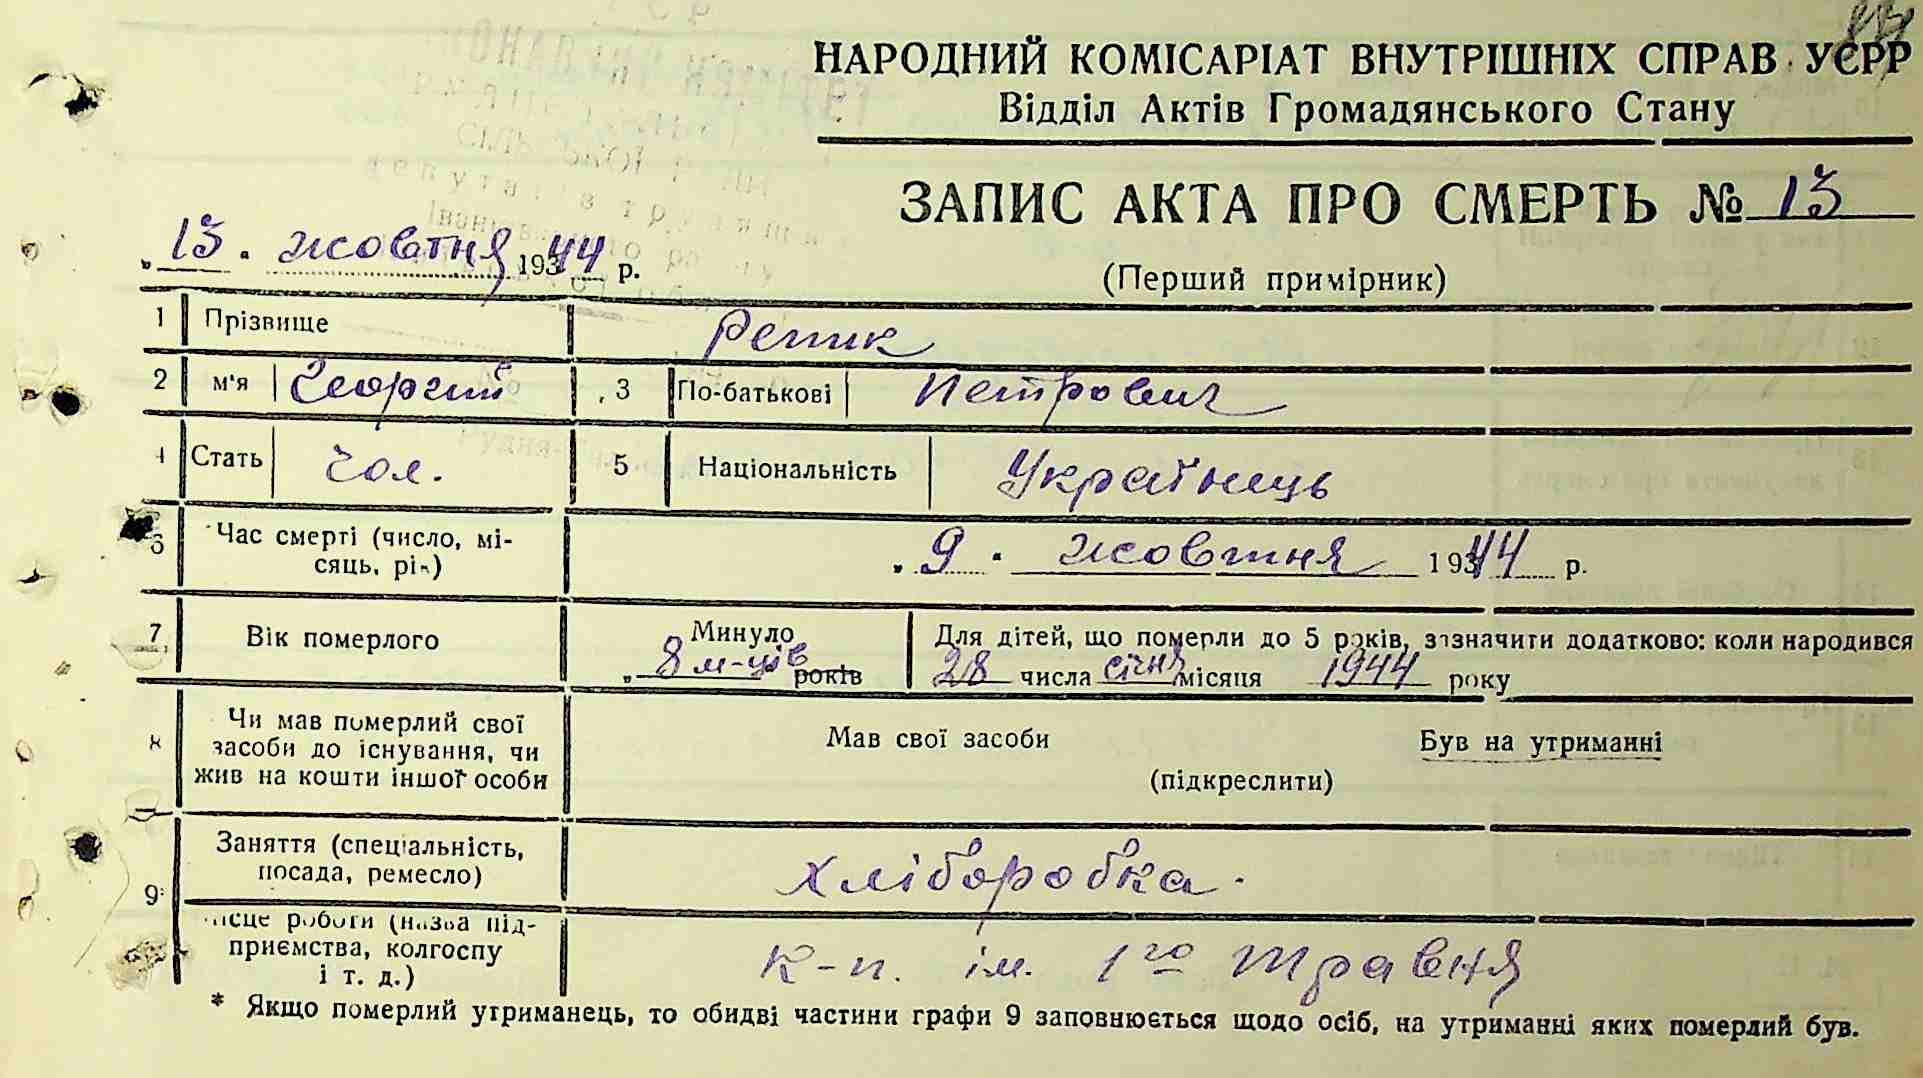 НАРОДНИЙ КОМІСАРІАТ ВНУТРІШНІХ СПРАВ УСРР
Відділ Актів Громадянського Стану
ЗАПИС АКТА ПРО СМЕРТЬ № 13
„ 13 " жовтня 1944 р.
(Перший примірник)
1 Прізвище Репик
2 м'я Георгий 3 По-батькові Петрович
4 Стать чол. 5 Національність Українець
Час смерті (число, мі-
сяць, рік) „ 9 " жовтня 1944 р.
7 Вік померлого Минуло „ 8 м-ців років Для дітей, що померли до 5 років, зазначити додатково: коли народився
28 числа січня місяця 1944 року
8 Чи мав померлий свої
засоби до існування, чи
жив на кошти іншої особи
Мав свої засоби Був на утриманні
(підкреслити)
9 Заняття (спеціальність,
посада, ремесло) хліборобка.
місце роботи (назва під-
приємства, колгоспу
і т. д.) к-п. ім. 1го травня
* Якщо померлий утриманець, то обидві частини графи 9 заповнюється щодо осіб, на утриманні яких померлий був.